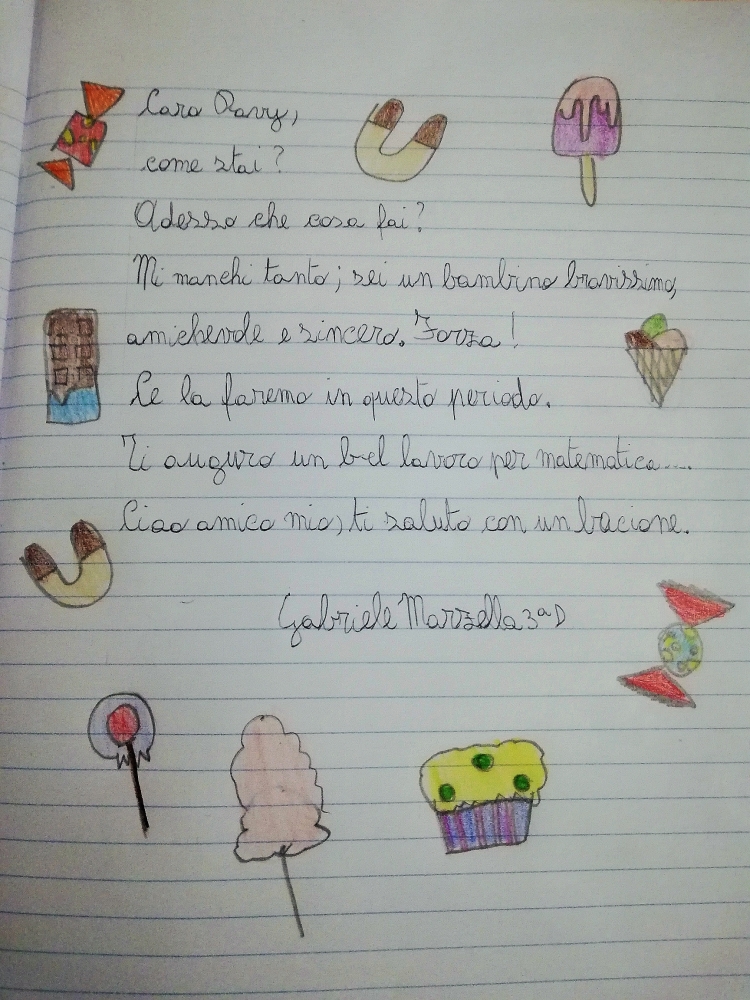 Caro Davy,
come stai?
Adesso che cosa fai?
Mi manchi tanto; sei un bambino bravissimo,
amichevole e sincero. Forza!
Ce la faremo in questo periodo.
Ti auguro un bel lavoro per matematica....
Ciao amico mio, ti saluto con un bacione.
Gabriele Marzella 3ªD